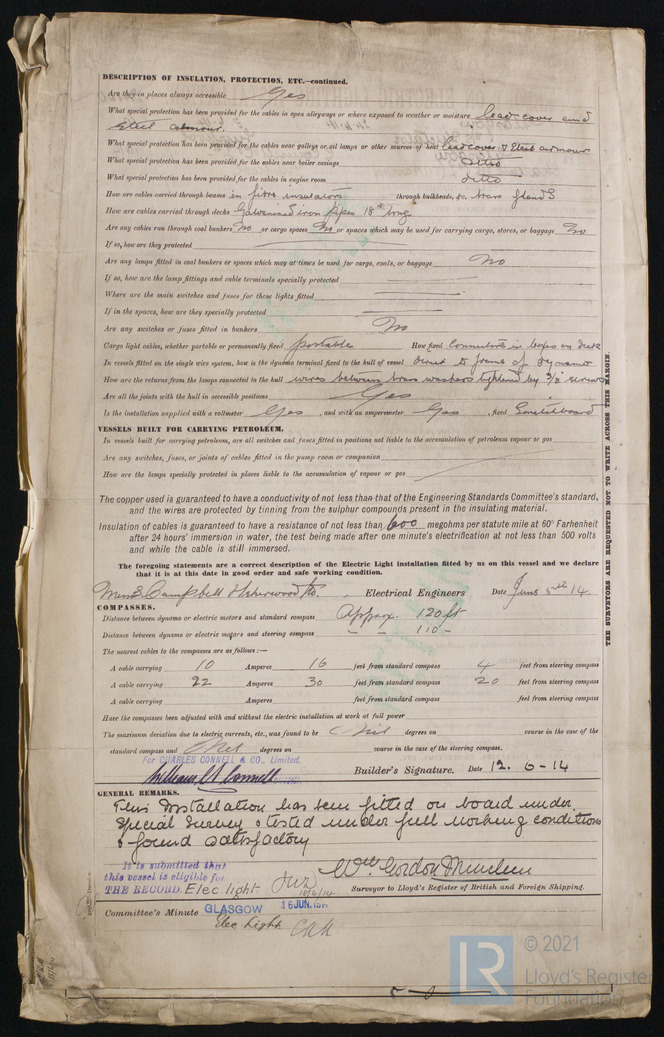 DESCRIPTION OF INSULATION, PROTECTION, ETC.—continued.
Are they in places always accessible Yes
What special protection has been provided for the cables in open alleyways or where exposed to weather or moisture lead cover and
steel armour.
What special protection has been provided for the cables near galleys or oil lamps or other sources of heat lead cover & steel armour
What special protection has been provided for the cables near boiler casings ditto
What special protection has been provided for the cables in engine room ditto
How are cables carried through beams in fibre insulators through bulkheads, &c. brass glands
How are cables carried through decks Galvanised iron pipes 18" long
Are any cables run through coal bunkers No or cargo spaces No or spaces which may be used for carrying cargo, stores, or baggage No
If so, how are they protected
Are any lamps fitted in coal bunkers or spaces which may at times be used for cargo, coals, or baggage No
If so, how are the lamp fittings and cable terminals specially protected
Where are the main switches and fuses for these lights fitted
If in the spaces, how are they specially protected
Are any switches or fuses fitted in bunkers No
Cargo light cables, whether portable or permanently fixed portable How fixed Connectors in boxes on deck
In vessels fitted on the single wire system, how is the dynamo terminal fixed to the hull of vessel direct to frame of dynamo
How are the returns from the lamps connected to the hull wires between brass washers tightened by 3/8 screws
Are all the joints with the hull in accessible positions Yes
Is the installation supplied with a voltmeter Yes, and with an amperemeter Yes, fixed Switchboard
VESSELS BUILT FOR CARRYING PETROLEUM.
In vessels built for carrying petroleum, are all switches and fuses fitted in positions not liable to the accumulation of petroleum vapour or gas
Are any switches, fuses, or joints of cables fitted in the pump room or companion
How are the lamps specially protected in places liable to the accumulation of vapour or gas
The copper used is guaranteed to have a conductivity of not less than that of the Engineering Standards Committee's standard,
and the wires are protected by tinning from the sulphur compounds present in the insulating material.
Insulation of cables is guaranteed to have a resistance of not less than 600 megohms per statute mile at 60° Farhenheit
after 24 hours' immersion in water, the test being made after one minute's electrification at not less than 500 volts
and while the cable is still immersed.
The foregoing statements are a correct description of the Electric Light installation fitted by us on this vessel and we declare
that it is at this date in good order and safe working condition.
Messrs Campbell & Isherwood Ltd. Electrical Engineers Date June 5th 14.
COMPASSES.
Distance between dynamo or electric motors and standard compass Approx. 120 ft
Distance between dynamo or electric motors and steering compass " 110 "
The nearest cables to the compasses are as follows:—
A cable carrying 10 Amperes 16 feet from standard compass 4 feet from steering compass
A cable carrying 22 Amperes 30 feet from standard compass 20 feet from steering compass
A cable carrying Amperes feet from standard compass feet from steering compass
Have the compasses been adjusted with and without the electric installation at work at full power
The maximum deviation due to electric currents, etc., was found to be Nil degrees on course in the case of the
standard compass and Nil degrees on course in the case of the steering compass.
For CHARLES CONNELL & CO., Limited,
William Connell Builder's Signature. Date 12. 6-14
GENERAL REMARKS.
This Installation has been fitted on board under
Special Survey & tested under full working conditions
& found satisfactory
It is submitted that
this vessel is eligible for
THE RECORD. Elec light 18/6/14
Wm Gordon
Surveyor to Lloyd's Register of British and Foreign Shipping.
Committee's Minute GLASGOW 16 JUN. 1914
Elec Light
THE SURVEYORS ARE REQUESTED NOT TO WRITE ACROSS THIS MARGIN.
LR
© 2021
Lloyd's Register
Foundation